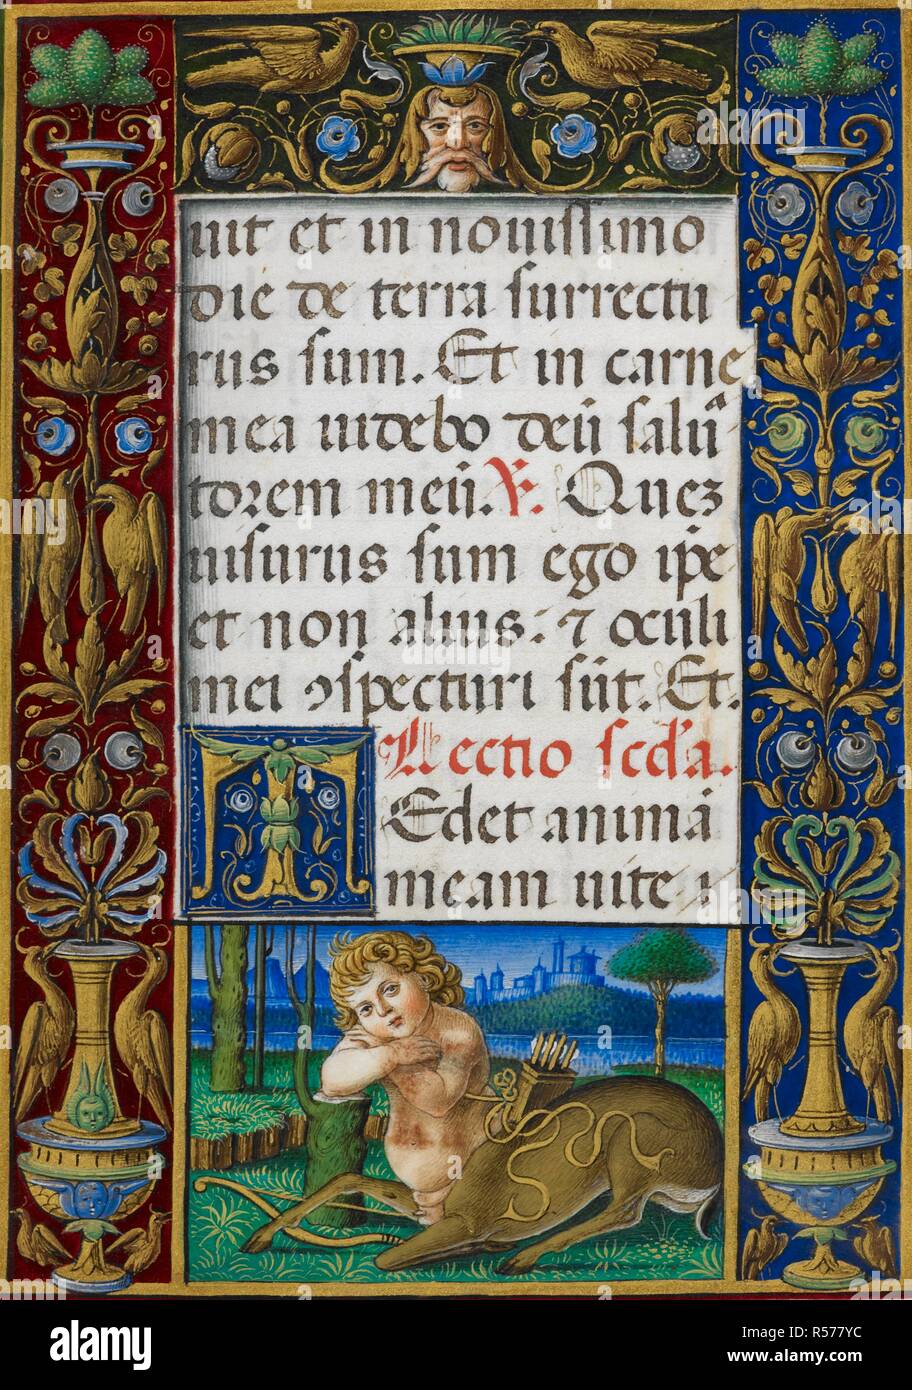 uit et in nouissimo
die de terra surrectu
rus sum. Et in carne
mea uidebo deū saluᷓ
torem meū. ℣. Quez
uisurus sum ego ip̄e
et non alius: ⁊ oculi
mei ꝯspecturi sūt. Et.
Lectio scd'a.
TEdet animā
meam uite ı
alamy
Image ID: R577YC
www.alamy.com